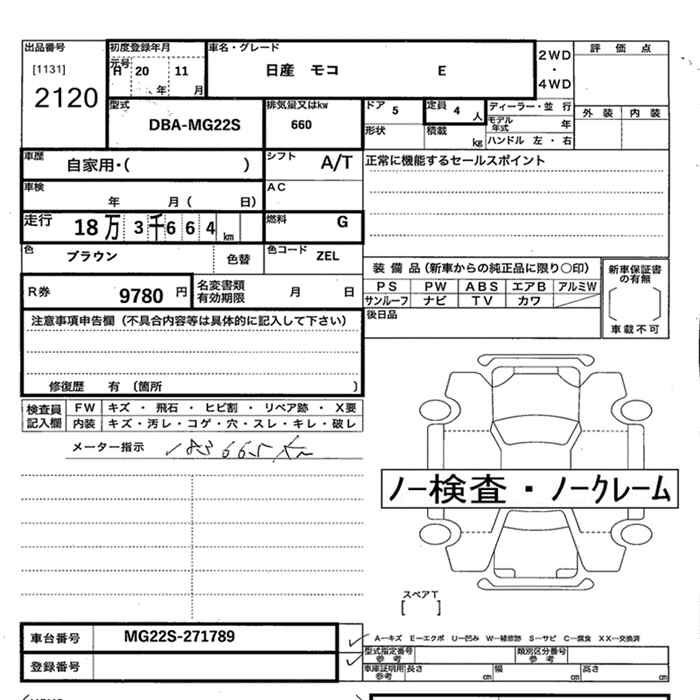 出品番号 初度登録年月 車名・グレード 評価点
[1131] 元号 H 20 11 日産 モコ E 2WD
2120 年 月 ・
4WD
型式 排気量又はkw ドア 5 定員 4 人 ディーラー・並 行 外装 内装
DBA-MG22S 660 形状 積載 kg モデル年式 年
ハンドル 左・右
車歴 自家用・( ) シフト A/T 正常に機能するセールスポイント
車検 年 月( 日) AC
走行 18万 3千664 km 燃料 G
色 ブラウン 色替 色コード ZEL
装備品(新車からの純正品に限り○印) 新車保証書の有無
R券 9780 円 名変書類有効期限 月 日 PS PW ABS エアB アルミW
サンルーフ ナビ TV カワ
注意事項申告欄(不具合内容等は具体的に記入して下さい) 後日品 車載不可
修復歴 有 〔箇所 〕
検査員記入欄 FW キズ・飛石・ヒビ割・リペア跡・X要
内装 キズ・汚レ・コゲ・穴・スレ・キレ・破レ
メーター指示 183665Km
ノー検査・ノークレーム
スペアT
[ ]
車台番号 MG22S-271789 A―キズ E―エクボ U―凹み W―補修跡 S―サビ C―腐食 XX―交換済
型式指定番号 参考 類別区分番号 参考
登録番号 車庫証明用 参考 長さ cm 幅 cm 高さ cm